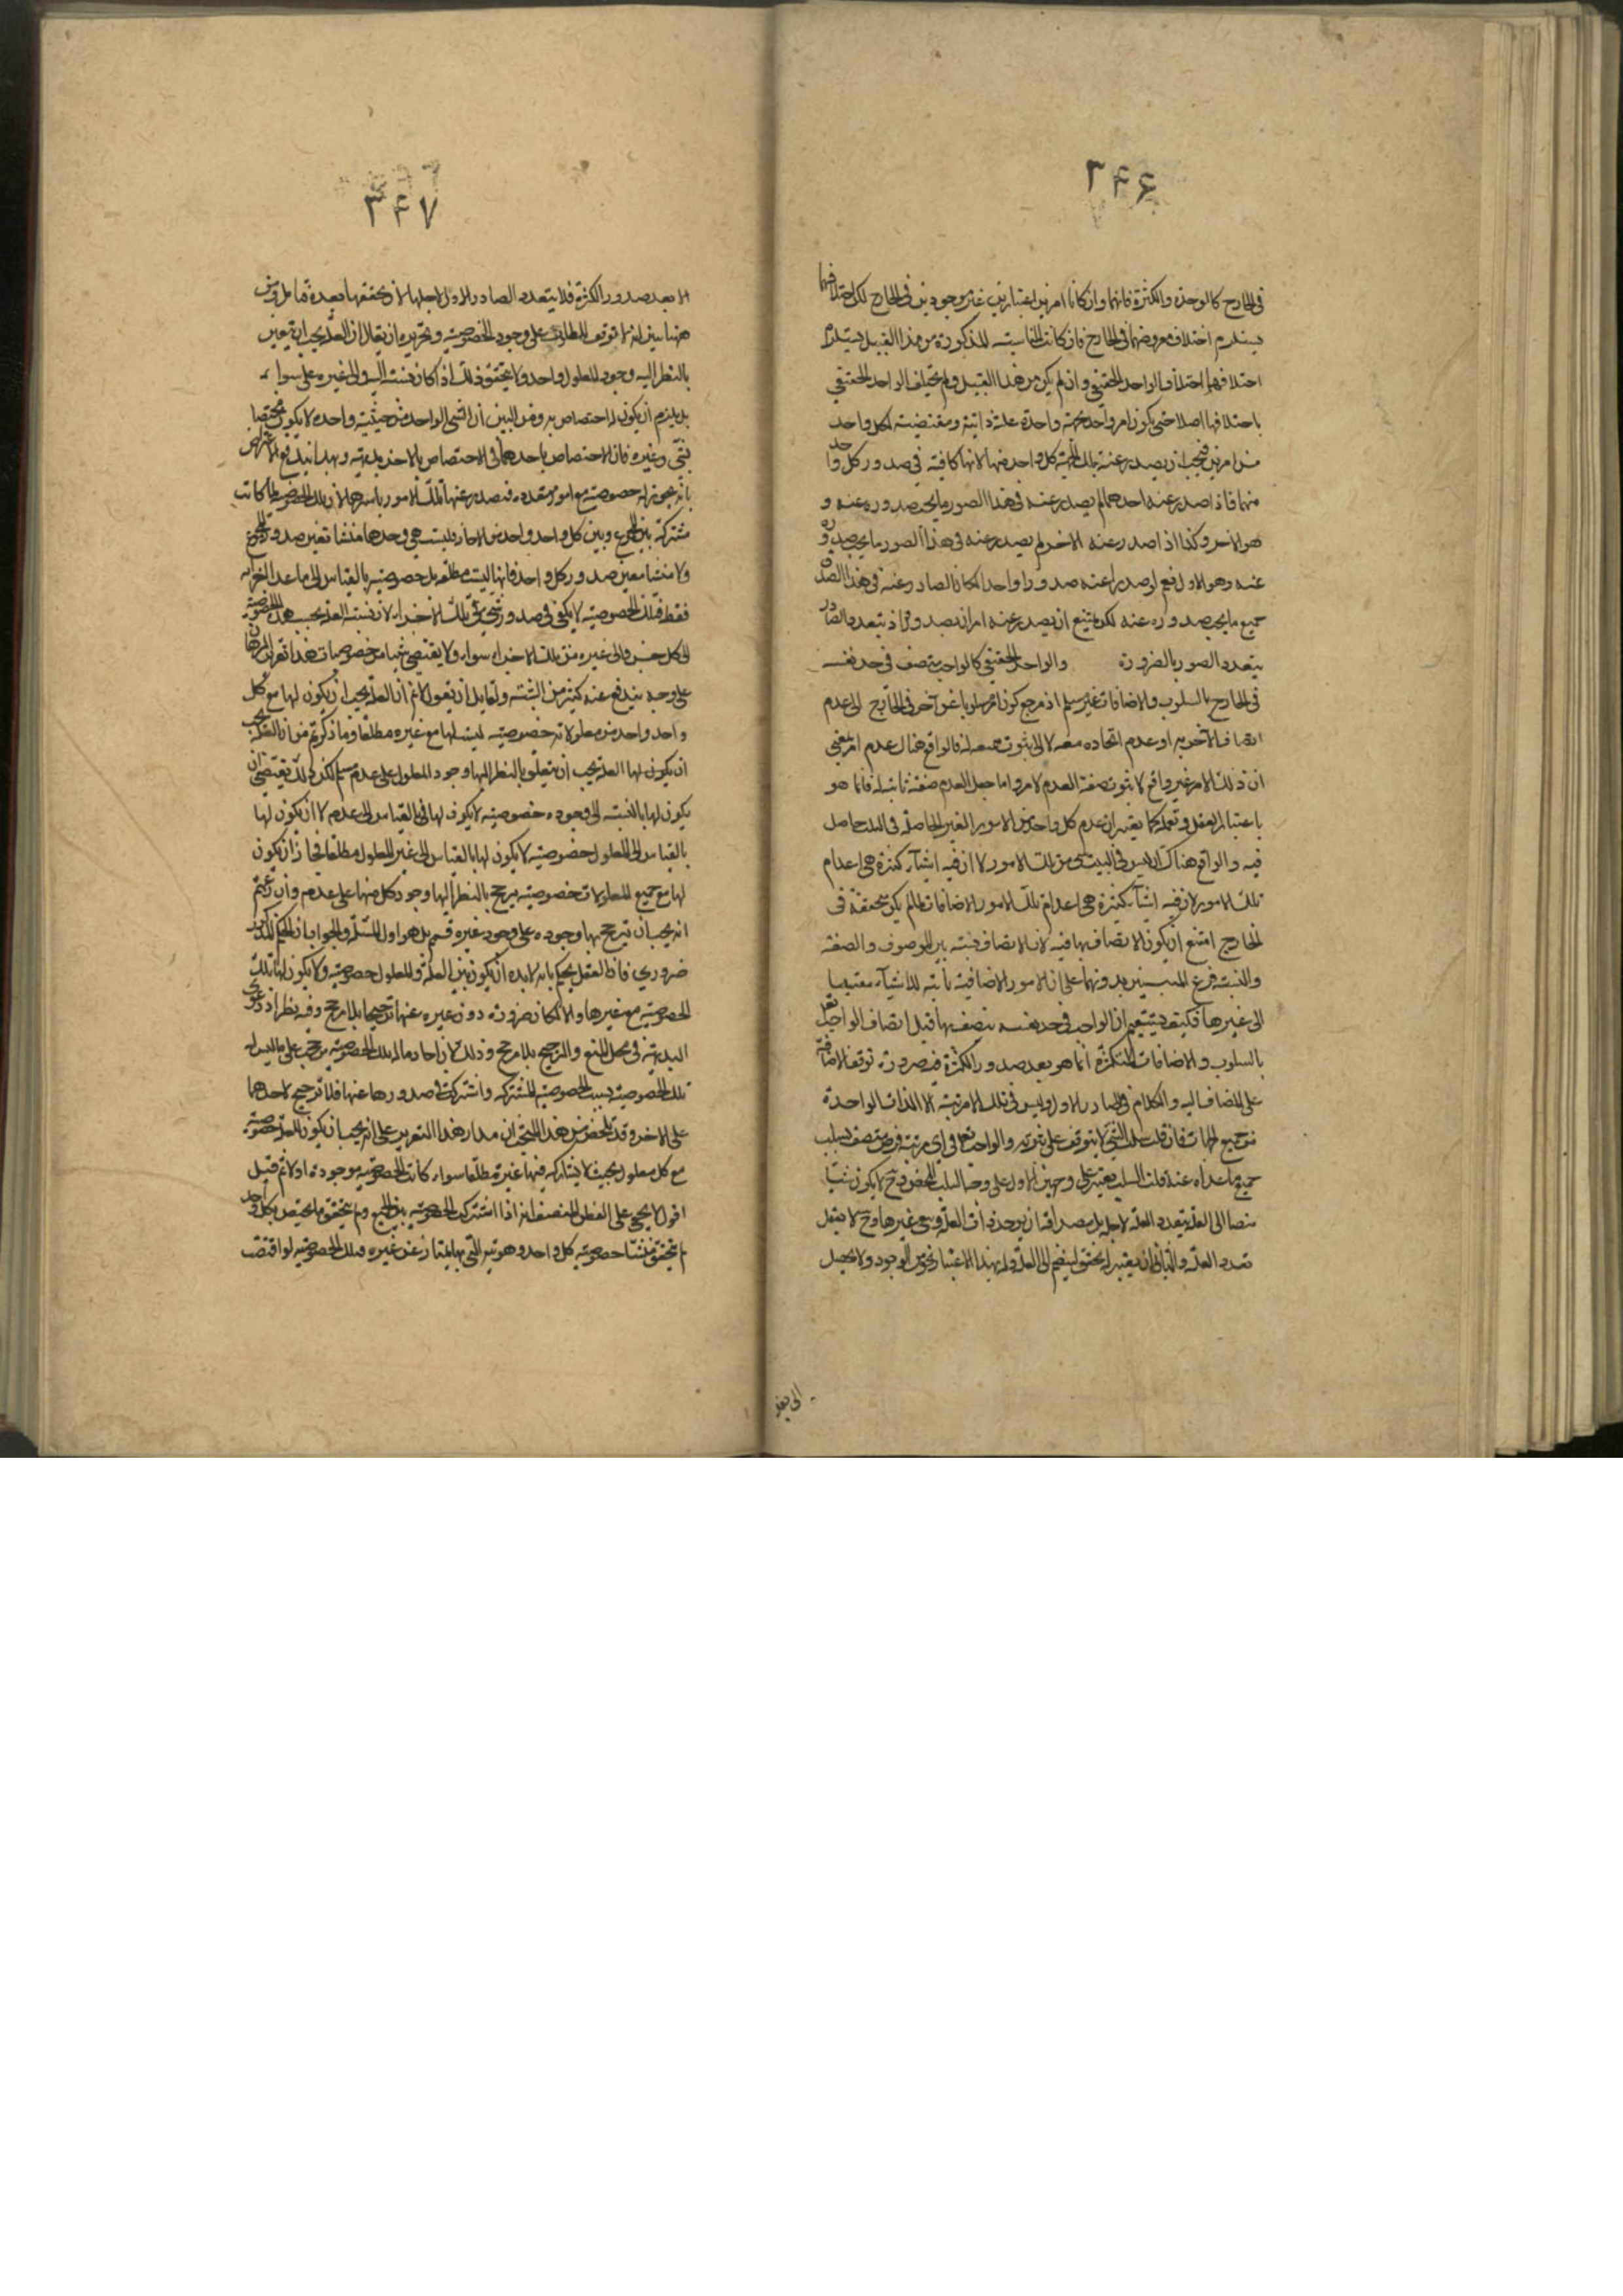 ۳۴۶
فى الخارج كالوحدة والكثرة فانهما وان كانا امرين اعتباريين غير موجودين فى الخارج لكن اختلافهما
يستلزم اختلاف معروضهما فى الخارج فان كانت المناسبة المذكورة من هذا القبيل يستلزم
اختلافهما اختلاف الواحد الحقيقي وان لم يكن من هذا القبيل ولم يختلف الواحد الحقيقي
باختلافها اصلا حتى يكون امر واحد بجهة واحدة علة ذاتية ومقتضية لكل واحد
من امرين فيجب ان يصدر عنه بتلك الحيثية كل واحد منهما لانها كافية فى صدور كل واحد
منهما فاذا صدر عنه احدهما لم يصدر عنه فى هذا الصور ما يجب صدوره عنه و
هو الاخر وكذا اذا صدر عنه الاخر لم يصدر عنه فى هذا الصور ما يجب صدوره
عنه وهو الاول نعم لو صدرا عنه صدورا واحدا لكان الصادر عنه فى هذا الصدور
جميع ما يجب صدوره عنه لكن يمتنع ان يصدر عنه امران بصدور واحد اذ بتعدد الصادر
يتعدد الصدور بالضرورة والواحد الحقيقي كالواجب يتصف فى حد نفسه
فى الخارج بالسلوب والاضافات غير مسلم اذ مرجع كون امر مسلوبا عن آخر فى الخارج الى عدم
اتصاف الآخر به او عدم اتحاده معه لا الى ثبوت صفة له فالواقع هناك عدم امر بمعنى
ان ذلك الامر غير واقع لا ثبوت صفة العدم لامر واما جعل العدم صفة ثابتة له فانما هو
باعتبار العقل وتعمله كما يعتبر ان عدم كل واحد من الامور الغير الحاصلة فى البيت حاصل
فيه والواقع هناك ان ليس فى البيت شىء من تلك الامور لا ان فيه اشياء كثيرة هى اعدام
تلك الامور لان فيه اشياء كثيرة هى اعدام تلك الامور والاضافات لما لم يكن متحققة فى
الخارج امتنع ان يكون الاتصاف بها فيه لان الاتصاف نسبة بين الموصوف والصفة
والنسبة فرع المنتسبين بدونهما على ان الامور الاضافية ثابتة للاشياء مقتيسا
الى غيرها فكيف يستقيم ان الواجب فى حد نفسه يتصف بها قبل اتصاف الواجب تعالى
بالسلوب والاضافات المتكثرة انما هو بعد صدور الكثرة ضرورة توقف الاضافة
على المضاف اليه والكلام فى الصادر الاول وليس فى تلك المرتبة الا الذات الواحدة
من جميع الجهات فان قلت سلب الشىء لا يتوقف على ثبوته والواجب تعالى فى اى مرتبة فرض متصف بسلب
جميع ما عداه عنه قلت السلب يعتبر على وجهين الاول على وجه السلب المحض وح لا يكون شيئا
منضما الى العلة يتعدد العلة لاجله بل مصداقه ان يوجد ذات العلة وسع غيرها وح لا يعقل
تعدد العلة والثانى ان يعتبر له تحقق لينضم الى العلة وله بهذا الاعتبار نحو من الوجود ولا يحصل
۳۴۷
الا بعد صدور الكثرة فلا يتعدد الصادر الاول لاجلها لان تحققها بعده تامل ومن
ههنا تبين انه لا توقف المطلوب على وجود الخصوصية وتحريره ان يقال ان العلة يجب ان يتعين
بالنظر اليه وجود المعلول واحد ولا يتحقق ذلك اذا كان نسبته اليه والى غيره على سواء
بل يلزم ان يكون له اختصاص به ومن البين ان الشىء الواحد من حيثية واحدة لا يكون مختصا
بشىء وغيره فان الاختصاص باحدهما ينافى الاختصاص بالاخر بديهية وبهذا يندفع الاعتراض
بانه يجوز له خصوصية مع امور متعددة فيصدر عنها تلك الامور باسرها لان تلك الخصوصية لما كانت
مشتركة بين المجموع وبين كل واحد واحد من الاحاد فليست هى وحدها منشأ تعين صدور المجموع
ولا منشأ تعين صدور كل واحد فانها ليست مطلقة بل خصوصية بالقياس الى ما عدا الاجزاء
فقط فتلك الخصوصية لا يكفى فى صدور شىء من تلك الاجزاء لان نسبة العلة بحسب هذه الخصوصية
الى كل جزء والى غيره من تلك الاجزاء سواء ولا يقتضى شيئا من خصوصيات هذا تقرير البرهان
على وجه يندفع عنه كثير من الشبه ولقايل ان يقول لا نم ان العلة يجب ان يكون لها مع كل
واحد واحد من معلولاته خصوصية ليست لها مع غيره مطلقا وما ذكرتم من ان العلة يجب
ان يكون لها العلة يجب ان يتعلق بالنظر اليها وجود المعلول على عدمه مسلم لكن ذلك يقتضى ان
يكون لها بالنسبة الى وجوده خصوصية لا يكون لها فى القياس الى عدمه لا ان يكون لها
بالقياس الى المعلول خصوصية لا يكون لها بالقياس الى غير المعلول مطلقا فجاز ان يكون
لها مع جميع المعلولات خصوصية يترجح بالنظر اليها وجود كل منها على عدمه وان زعمتم
انه يجب ان يترجح بها وجوده على وجود غيره فهو اول المسئلة والجواب ان الحكم المذكور
ضرورى فان العقل يحكم بانه لا بد ان يكون بين العلة والمعلول خصوصية ولا يكون لها تلك
الخصوصية مع غيرها والا لكان ضرورة دون غيره عنها ترجيحا بلا مرجح وفيه نظر اذ دعوى
البديهة فى محل المنع والترجيح بلا مرجح وذلك لان احاد ما له تلك الخصوصية يترجح على ما ليس له
تلك الخصوصية بسبب الخصوصية المشتركة واشتركت فى صدورها عنها فلا ترجيح لاحدهما
على الاخر وقد تلخص من هذا البحث ان مدار هذا التقرير على انه يجب ان يكون للعلة خصوصية
مع كل معلول بحيث لا يشاركه فيها غيره مطلقا سواء كانت الخصوصية موجودة او لا ثم قيل
اقول لا يخفى على الفطن المنصف انه اذا اشتركت الخصوصية بين الجميع ولم يتحقق ما يختص بكل واحد
لم يتحقق منشأ خصوصية كل واحد وهويته التى بها يمتاز عن غيره فتلك الخصوصية لو اقتضت